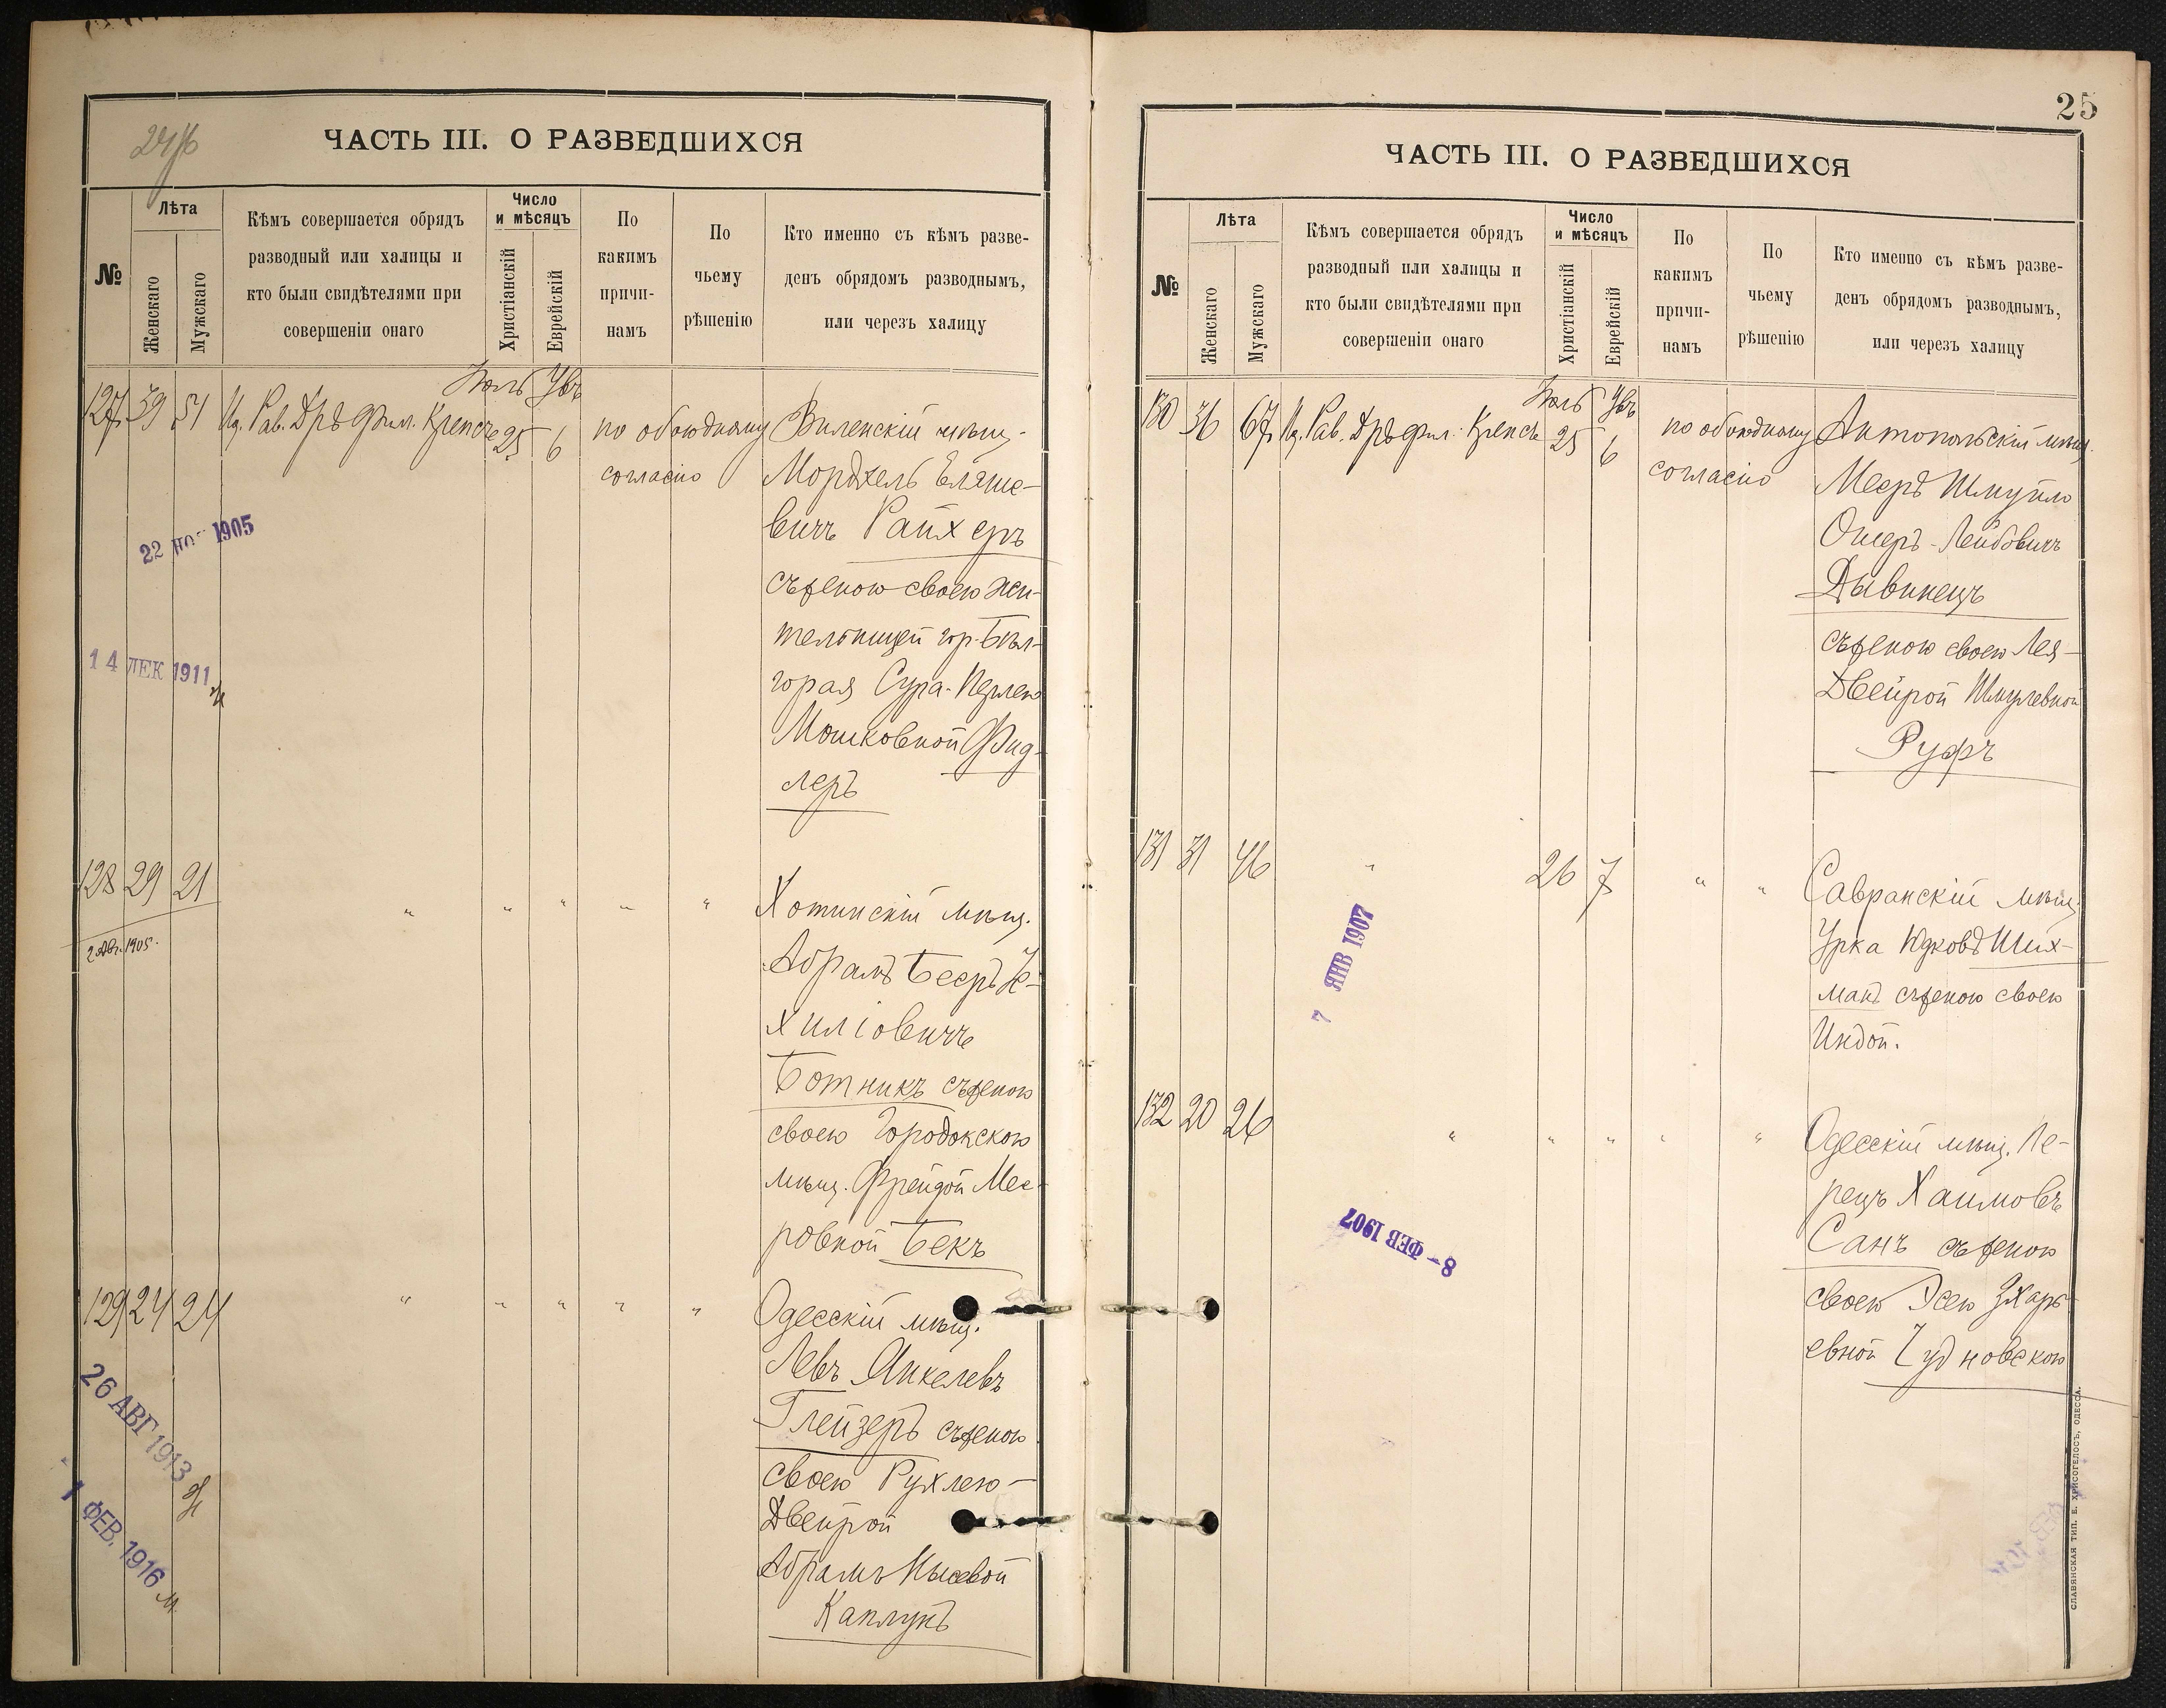 ЧАСТЬ III. О РАЗВЕДШИХСЯ
№
Лѣта
Женскаго
Мужскаго
Кѣмъ совершается обрядъ
разводный или халицы и
кто были свидѣтелями при
совершеніи онаго
Число
и мѣсяцъ
Христіанскій
Еврейскій
По
какимъ
причи-
намъ
По
чьему
рѣшенію
Кто именно съ кѣмъ разве-
денъ обрядомъ разводнымъ,
или черезъ халицу
Іюль
127 39 51 Рав. Дръ Фил. Крепсъ 25 6
по обоюдному
согласію
Виленскій мѣщ.
Мордхель Еляше-
вичъ Райхеръ
съ женою своею жи-
тельницей гор. Бѣл-
горая Сура-Перлею
Мошковной Фид-
леръ
22 1905
14 ДЕК 1911
128 29 21 " " " " "
2 Авг. 1905.
Хотинскій мѣщ.
Абрамъ Бееръ Іе-
хиліовичъ
Ботникъ съ женою
своею Городокскою
мѣщ. Фрейдой Мее-
ровной Бекъ
129 24 24 " " " " "
Одесскій мѣщ.
Левъ Янкелевъ
Глейзеръ съ женою
своею Рухлею-
Двейрой
Каплунъ
26 АВГ 1913
1 ФЕВ. 1916
25
ЧАСТЬ III. О РАЗВЕДШИХСЯ
№
Лѣта
Женскаго
Мужскаго
Кѣмъ совершается обрядъ
разводный или халицы и
кто были свидѣтелями при
совершеніи онаго
Число
и мѣсяцъ
Христіанскій
Еврейскій
По
какимъ
причи-
намъ
По
чьему
рѣшенію
Кто именно съ кѣмъ разве-
денъ обрядомъ разводнымъ,
или черезъ халицу
Іюль
130 36 67 Рав. Дръ Фил. Крепсъ 25 6
по обоюдному
согласію
Антопольскій мѣщ.
Мееръ Шмуйло
Ошеръ-Лейбовичъ
Дывинецъ
съ женою своею Лея-
Двейрой Шмулевной
Руфъ
131 31 46 " 26 7 " "
Савранскій мѣщ.
Урка Юдковъ Ших-
манъ съ женою своею
Индой.
7 ЯНВ 1907
132 20 26 " " " " "
Одесскій мѣщ. Пе-
рецъ Хаимовъ
Санъ съ женою
своею Эсею
евной Чудновскою
8 - ФЕВ 1907
СЛАВЯНСКАЯ ТИП. Е. ХРИСОГЕЛОСЪ, ОДЕССА.